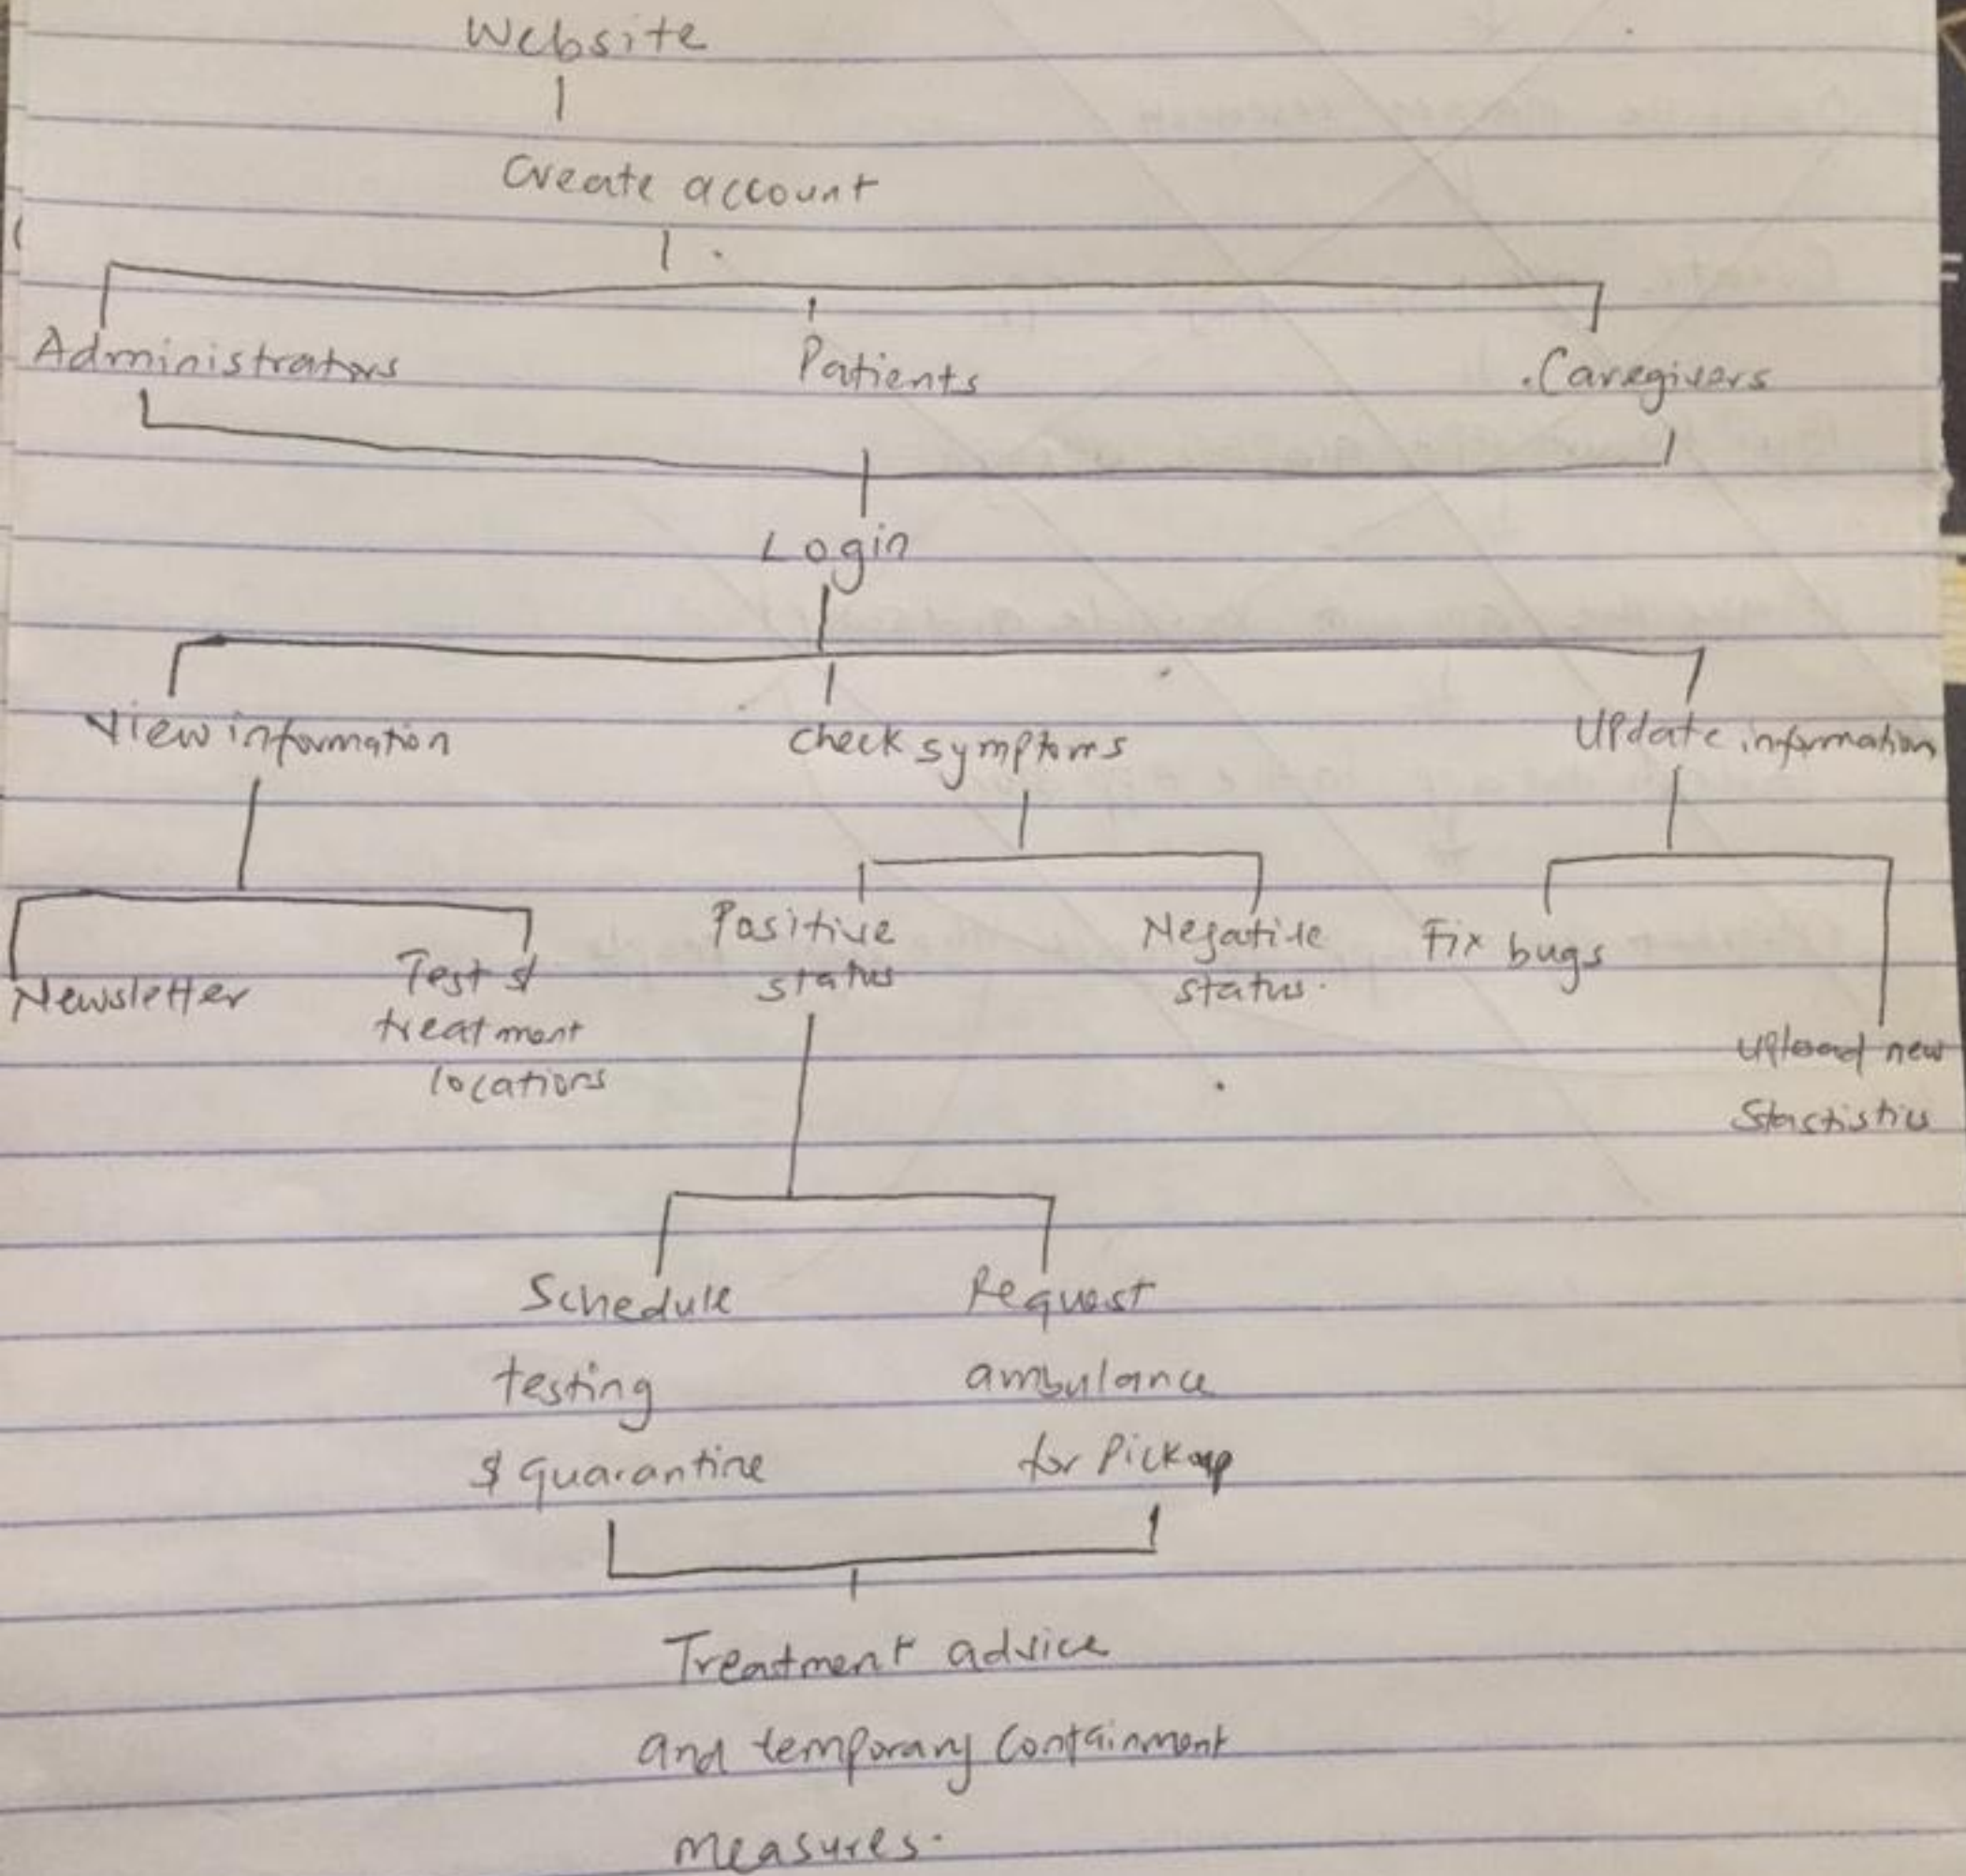 Website
Create account
Administrators Patients Caregivers
Login
View information Check symptoms Update information
Newsletter
Test &
treatment
locations
Positive
status
Negative
status.
Fix bugs
Upload new
Stastistics
Schedule
testing
& quarantine
Request
ambulance
for Pickup
Treatment advice
and temporary Containment
measures.